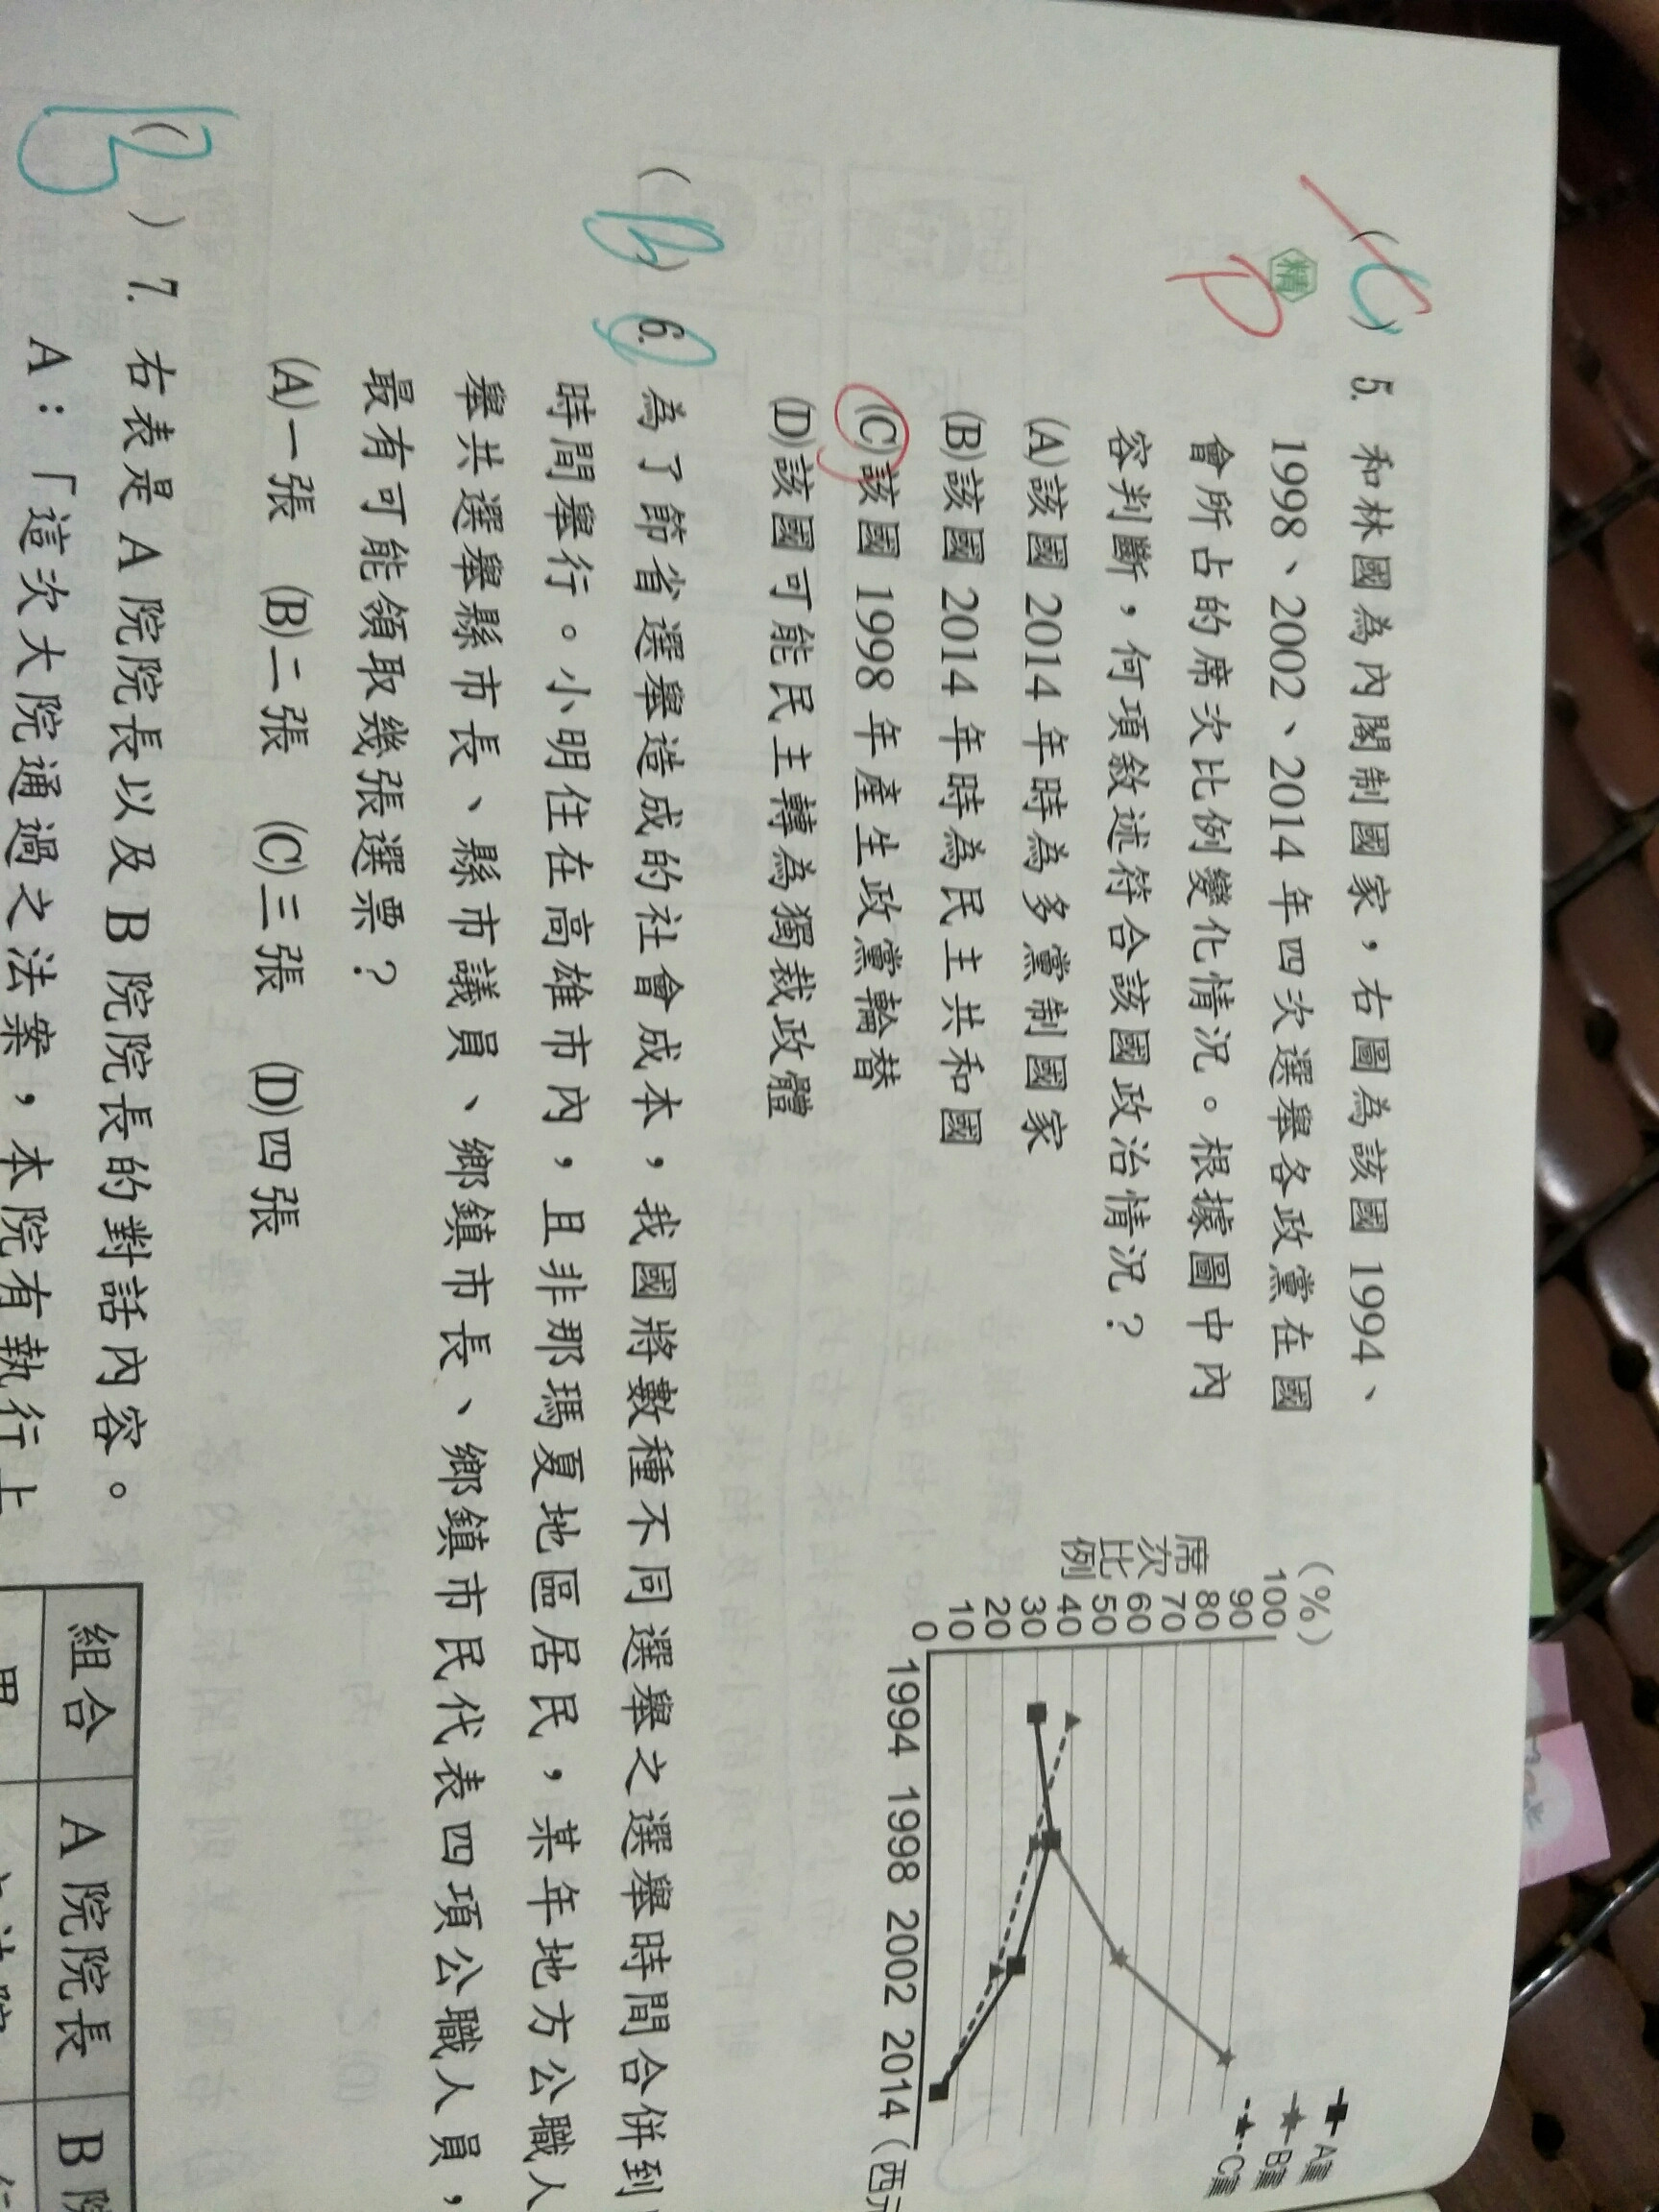 (C) 5. 和林國為內閣制國家，右圖為該國 1994、
精 D
1998、2002、2014 年四次選舉各政黨在國
會所占的席次比例變化情況。根據圖中內
容判斷，何項敘述符合該國政治情況？
(A)該國 2014 年時為多黨制國家
(B)該國 2014 年時為民主共和國
(C)該國 1998 年產生政黨輪替
(D)該國可能民主轉為獨裁政體
(%)
100
90
80
70
60
50
40
30
20
10
0
席次比例
1994 1998 2002 2014 (西元
A黨
B黨
C黨
(B) 6. 為了節省選舉造成的社會成本，我國將數種不同選舉之選舉時間合併到
時間舉行。小明住在高雄市內，且非那瑪夏地區居民，某年地方公職人
舉共選舉縣市長、縣市議員、鄉鎮市長、鄉鎮市民代表四項公職人員，
最有可能領取幾張選票？
(A)一張 (B)二張 (C)三張 (D)四張
(B) 7. 右表是 A 院院長以及 B 院院長的對話內容。
A：「這次大院通過之法案，本院有執行上
組合 A 院院長 B 院